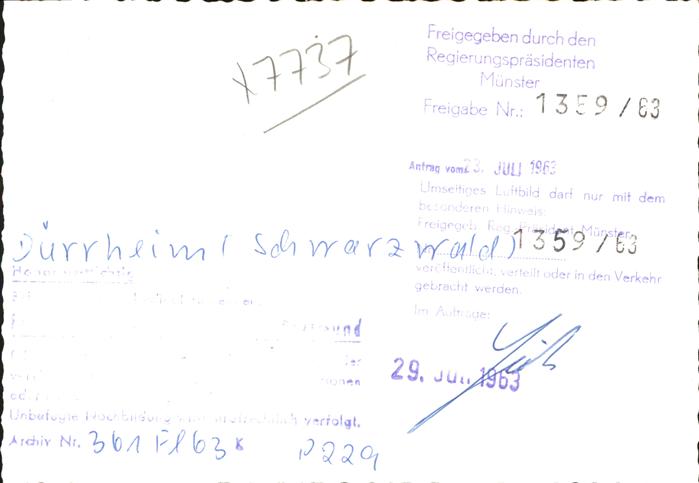 x7737
Freigegeben durch den
Regierungspräsidenten
Münster
Freigabe Nr.: 1359/63
Antrag vom: 23. JULI 1963
Umseitiges Luftbild darf nur mit dem
besonderen Hinweis:
Freigeg. Reg. Präsident Münster
1359/63
veröffentlicht, verteilt oder in den Verkehr
gebracht werden.
Im Auftrage:
29. JULI 1963
Dürrheim (Schwarzwald)
Honorarpflichtig
Dortmund
Unbefugte Nachbildung wird strafrechtlich verfolgt.
Archiv Nr. 361 Fl 63 K